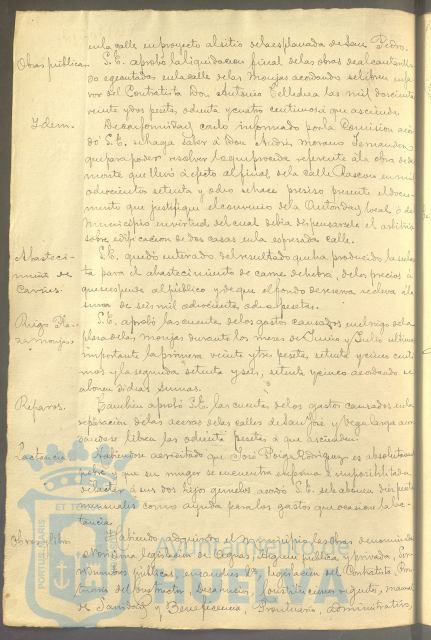 en la calle en proyecto al sitio de la esplanada de San Pedro.
Obras públicas. S.E. aprobó la liquidacion final de las obras de alcantarilla
do ejecutadas en la calle de las Monjas acordando se libren en fa
vor del Contratista Don Antonio las mil doscientas
veinte y dos pesetas, ochenta y cuatro centimos a que asciende.
Idem. De conformidad con lo informado por la Comision acor
dó S.E. se haga saber á Don Andrés Moreno Fernandez
que para poder resolver lo que proceda referente á la obra de
que llevó á efecto al final de la calle Rascon en mil
ochocientos setenta y ocho se hace preciso presente el docu-
mento que justifique el convenio de la Autoridad local ó del
Municipio en virtud del cual debia dispensarsele el arbitrio
sobre edificacion de dos casas en la espresada calle.
Abasteci-
miento de
carnes. S.E. quedó enterado del resultado que ha producido la subas
ta para el abastecimiento de carne de hebra, de los precios á
que se espende al público y de que el fondo de reserva se eleva á la
suma de seis mil ochocientas ocho pesetas.
Riego Pla-
za monjas. S.E. aprobó las cuentas de los gastos causados en el riego de la
plaza de las Monjas durante los meses de Junio y Julio último
importante la primera veinte y tres pesetas, setenta y cinco centi
mos y la segunda setenta y seis, setenta y cinco acordando se
abonen dichas sumas.
Reparos. Tambien aprobó S.E. las cuentas de los gastos causados en la
reparacion de las aceras de las calles de San José y Vega Larga acor
dandose libren las ochenta pesetas á que ascienden.
Lactancia. Habiendose acreditado que José Rodriguez es absolutamente
pobre y que su muger se encuentra enferma é imposibilitada
de lactar á sus dos hijos gemelos acordó S.E. se le abonen diez pesetas
mensuales como ayuda para los gastos que ocasione la lac-
tancia.
Habiendo adquirido el municipio las obras denominadas
Novísima legislacion de Aguas, Higiene pública y privada,
públicos, legislacion del Contratista,
de Sanidad y Beneficencia, Prontuario, administrativo,
PORTUS MARIS
ET TERRAE
Ayuntamiento de
HUELVA